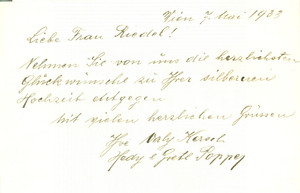 Wien 7. Mai 1933
Liebe Frau Riedel!
Nehmen Sie von uns die herzlichsten
Glückwünsche zu Ihrer silbernen
Hochzeit entgegen
Mit vielen herzlichen Grüssen
Ihre
Hedy & Gretl Popper